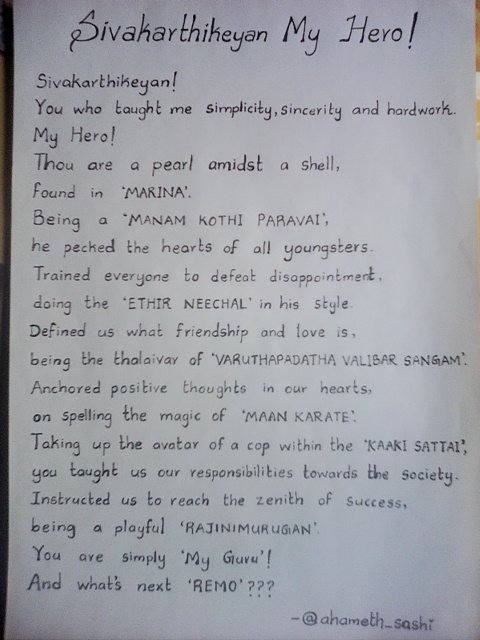 Sivakarthikeyan My Hero!
Sivakarthikeyan!
You who taught me simplicity, sincerity and hardwork.
My Hero!
Thou are a pearl amidst a shell,
found in 'MARINA'.
Being a 'MANAM KOTHI PARAVAI',
he pecked the hearts of all youngsters.
Trained everyone to defeat disappointment,
doing the 'ETHIR NEECHAL' in his style.
Defined us what friendship and love is,
being the thalaivar of 'VARUTHAPADATHA VALIBAR SANGAM'.
Anchored positive thoughts in our hearts,
on spelling the magic of 'MAAN KARATE'.
Taking up the avatar of a cop within the 'KAAKI SATTAI',
you taught us our responsibilities towards the society.
Instructed us to reach the zenith of success,
being a playful 'RAJINIMURUGAN'.
You are simply 'My Guru'!
And what's next 'REMO'???
-@ahameth_sashi